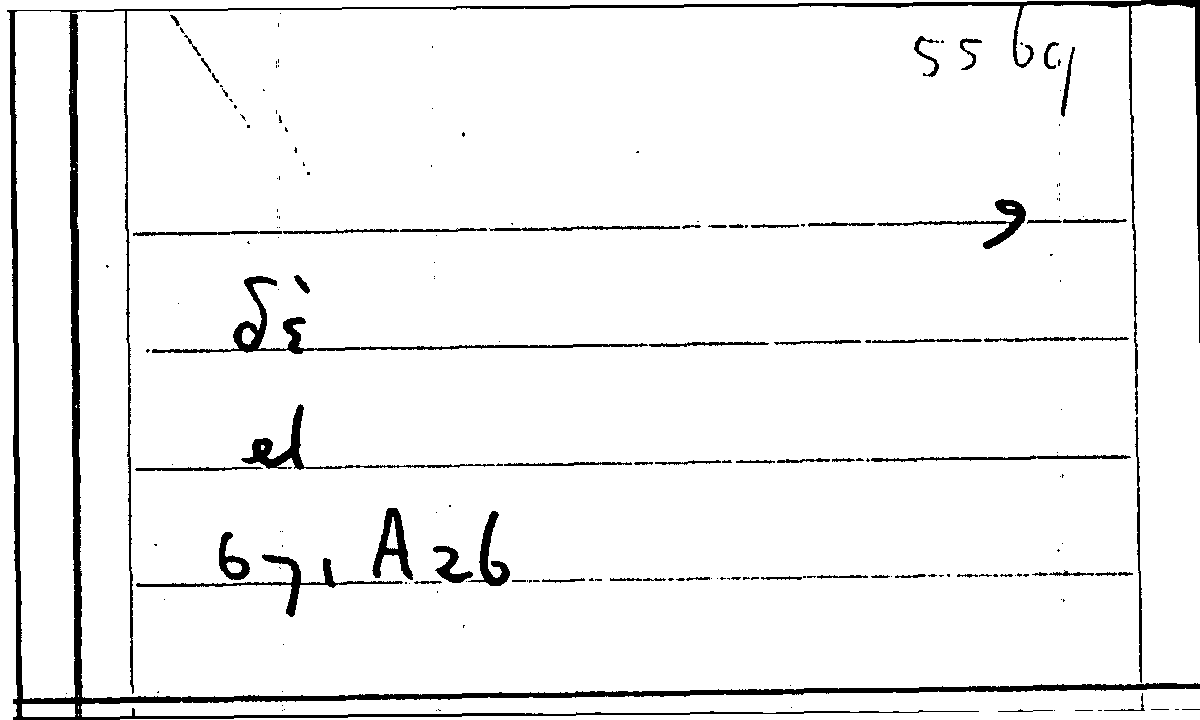 5569
9
δὲ
el
671 A26